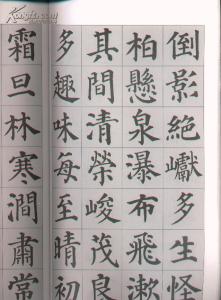 倒影絶巘多生怪
柏懸泉瀑布飛漱
其間清榮峻茂良
多趣味每至晴初
霜旦林寒澗肅常